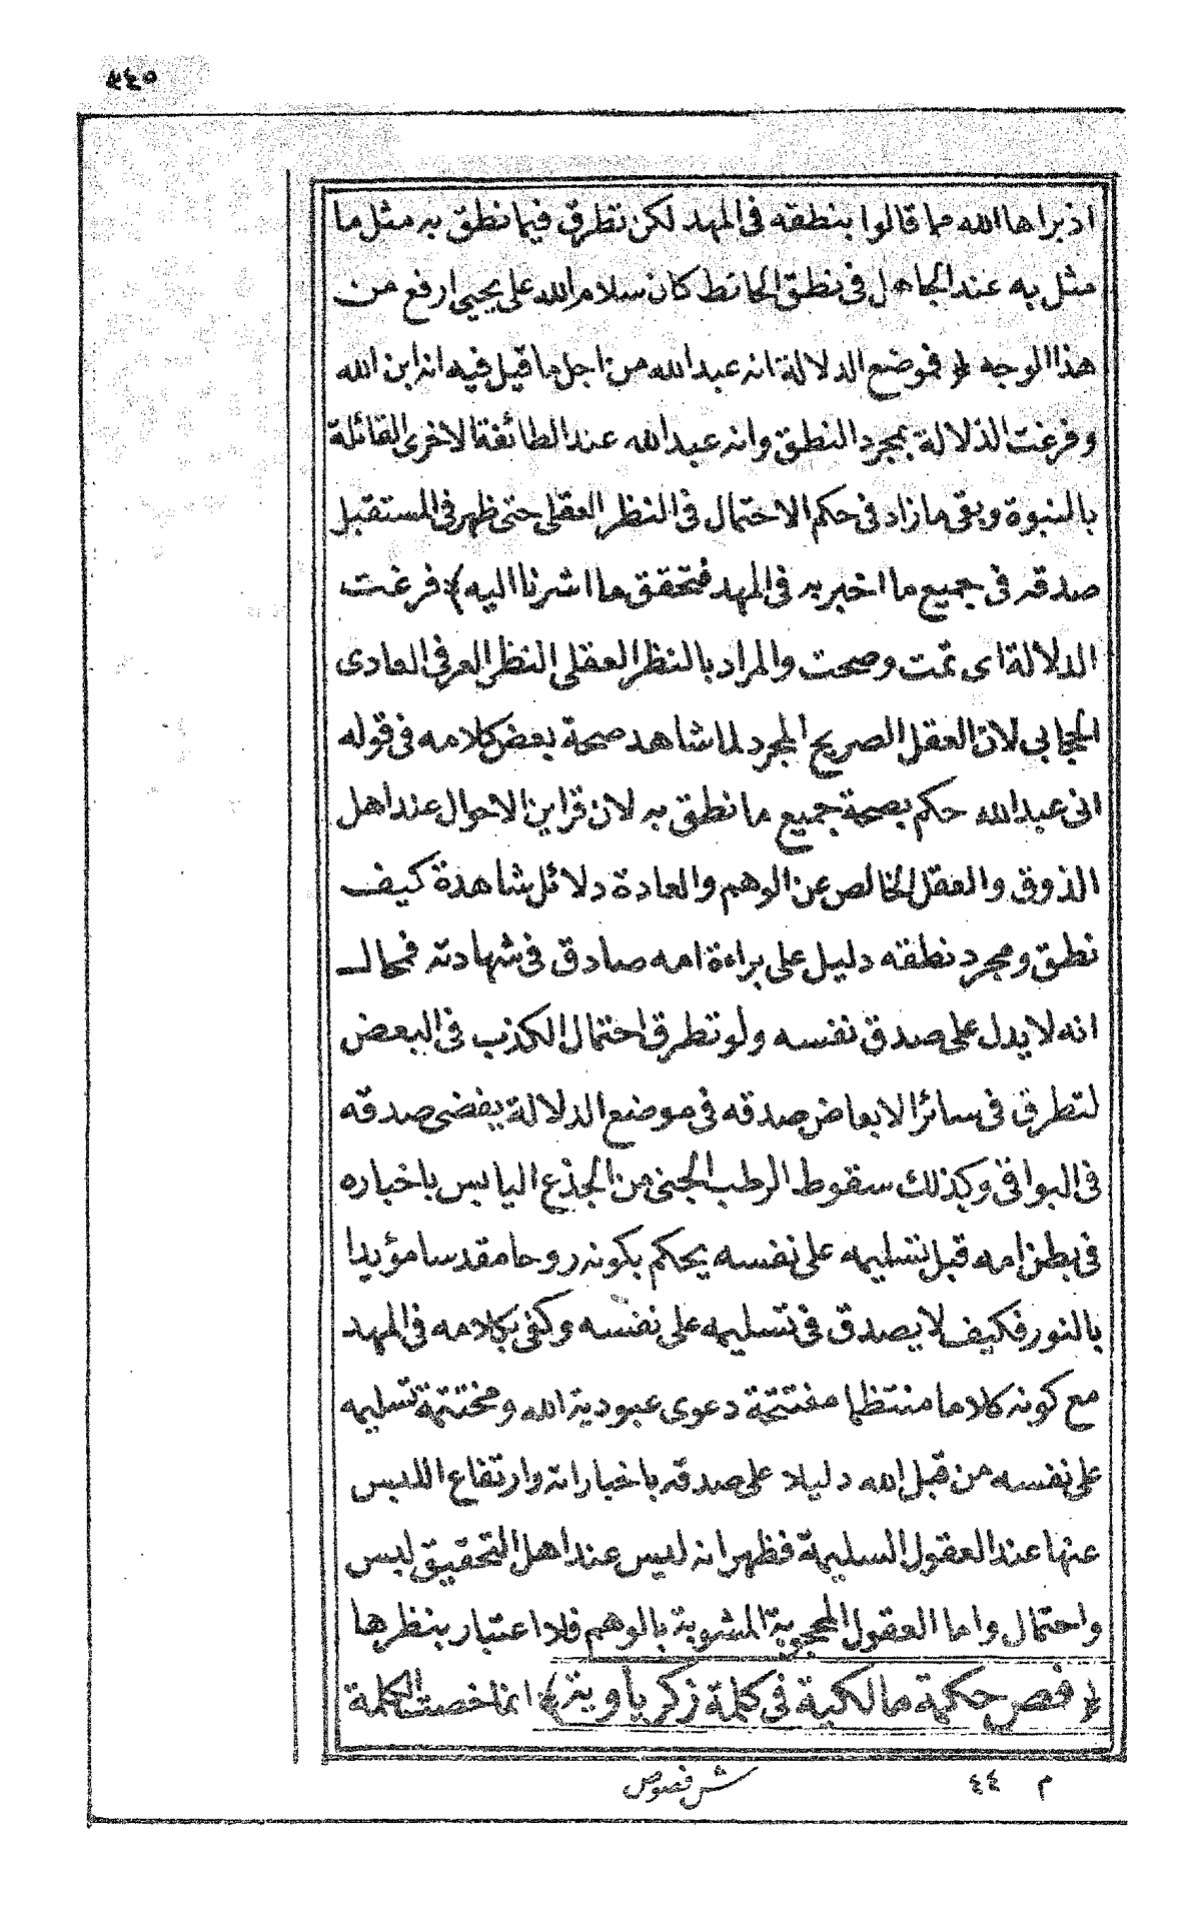 ٣٤٥
اذ براها الله مما قالوا بنطقه فى المهد لكن تطرق فيما نطق به مثل ما
مثل به عند الجاهل فى نطق الحائط كان سلام الله على يحيى ارفع من
هذا الوجه ﴿ فموضع الدلالة انه عبد الله من اجل ما قيل فيه انه ابن الله
وفرغت الدلالة بمجرد النطق وانه عبد الله عند الطائفة الاخرى القائلة
بالنبوة وبقى ما زاد فى حكم الاحتمال فى النظر العقلى حتى ظهر فى المستقبل
صدقه فى جميع ما اخبر به فى المهد فتحقق ما اشرنا اليه ﴾ فرغت
الدلالة اى تمت وصحت والمراد بالنظر العقلى النظر العرفى العادى
الحجابى لان العقل الصريح المجرد لما شاهد صحة بعض كلامه فى قوله
انى عبد الله حكم بصحة جميع ما نطق به لان قراين الاحوال عند اهل
الذوق والعقل الخالص عن الوهم والعادة دلائل شاهدة كيف
نطق ومجرد نطقه دليل على براءة امه صادق فى شهادته فمحال
انه لا يدل على صدق نفسه ولو تطرق احتمال الكذب فى البعض
لتطرق فى سائر الابعاض صدقه فى موضع الدلالة يفضى صدقه
فى البواقى وكذلك سقوط الرطب الجنى من الجذع اليابس باخباره
فى بطن امه قبل تسليمه على نفسه يحكم بكونه روحا مقدسا مؤيدا
بالنور فكيف لا يصدق فى تسليمه على نفسه وكفى بكلامه فى المهد
مع كونه كلاما منتظما مفتتحة دعوى عبودية الله ومختتمة تسليمه
على نفسه من قبل الله دليلا على صدقه باخباراته وارتفاع اللبس
عنها عند العقول السليمة فظهر انه ليس عند اهل التحقيق لبس
واحتمال واما العقول المحجوبة المشوبة بالوهم فلا اعتبار بنظرها
﴿ فص حكمة مالكية فى كلمة زكرياوية ﴾ انما خصت الكلمة
م ٤٤ شر فصوص